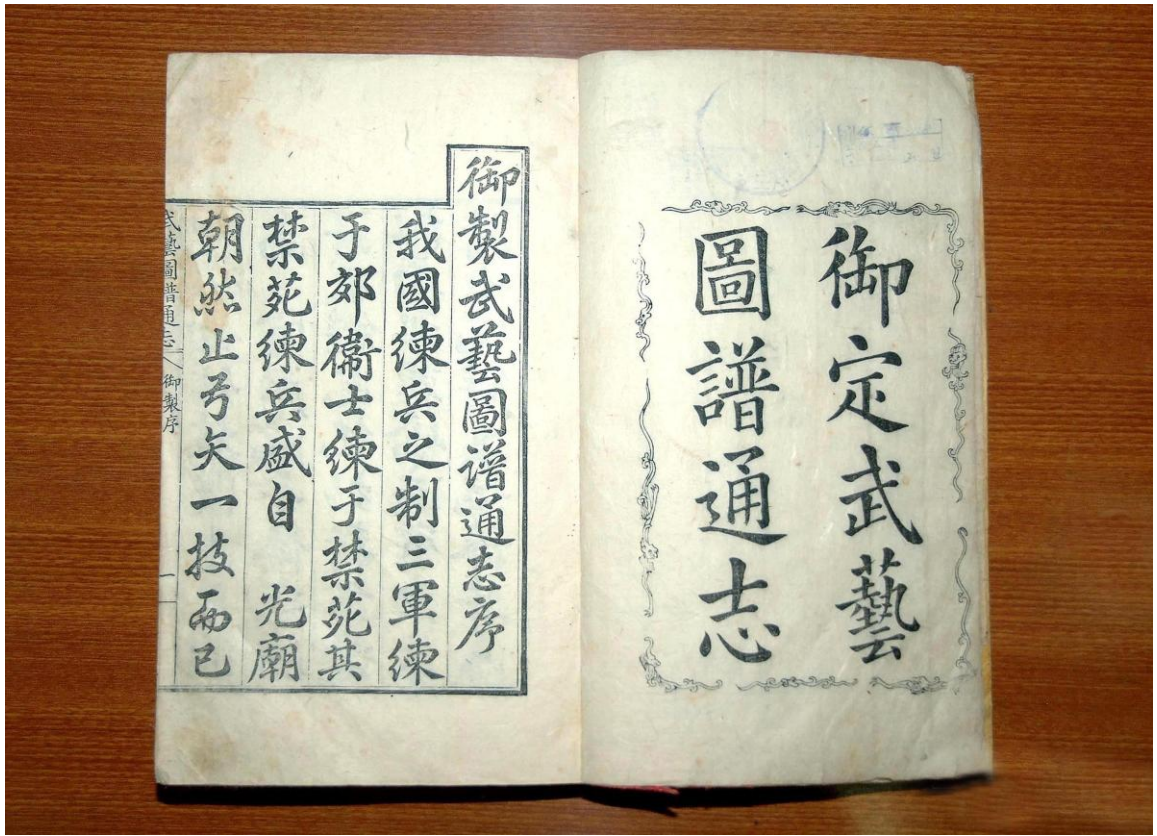 御定武藝
圖譜通志
御製武藝圖譜通志序
我國練兵之制三軍練
于郊衞士練于禁苑其
禁苑練兵盛自 光廟
朝然止弓矢一技而已
武藝圖譜通志
御製序
一